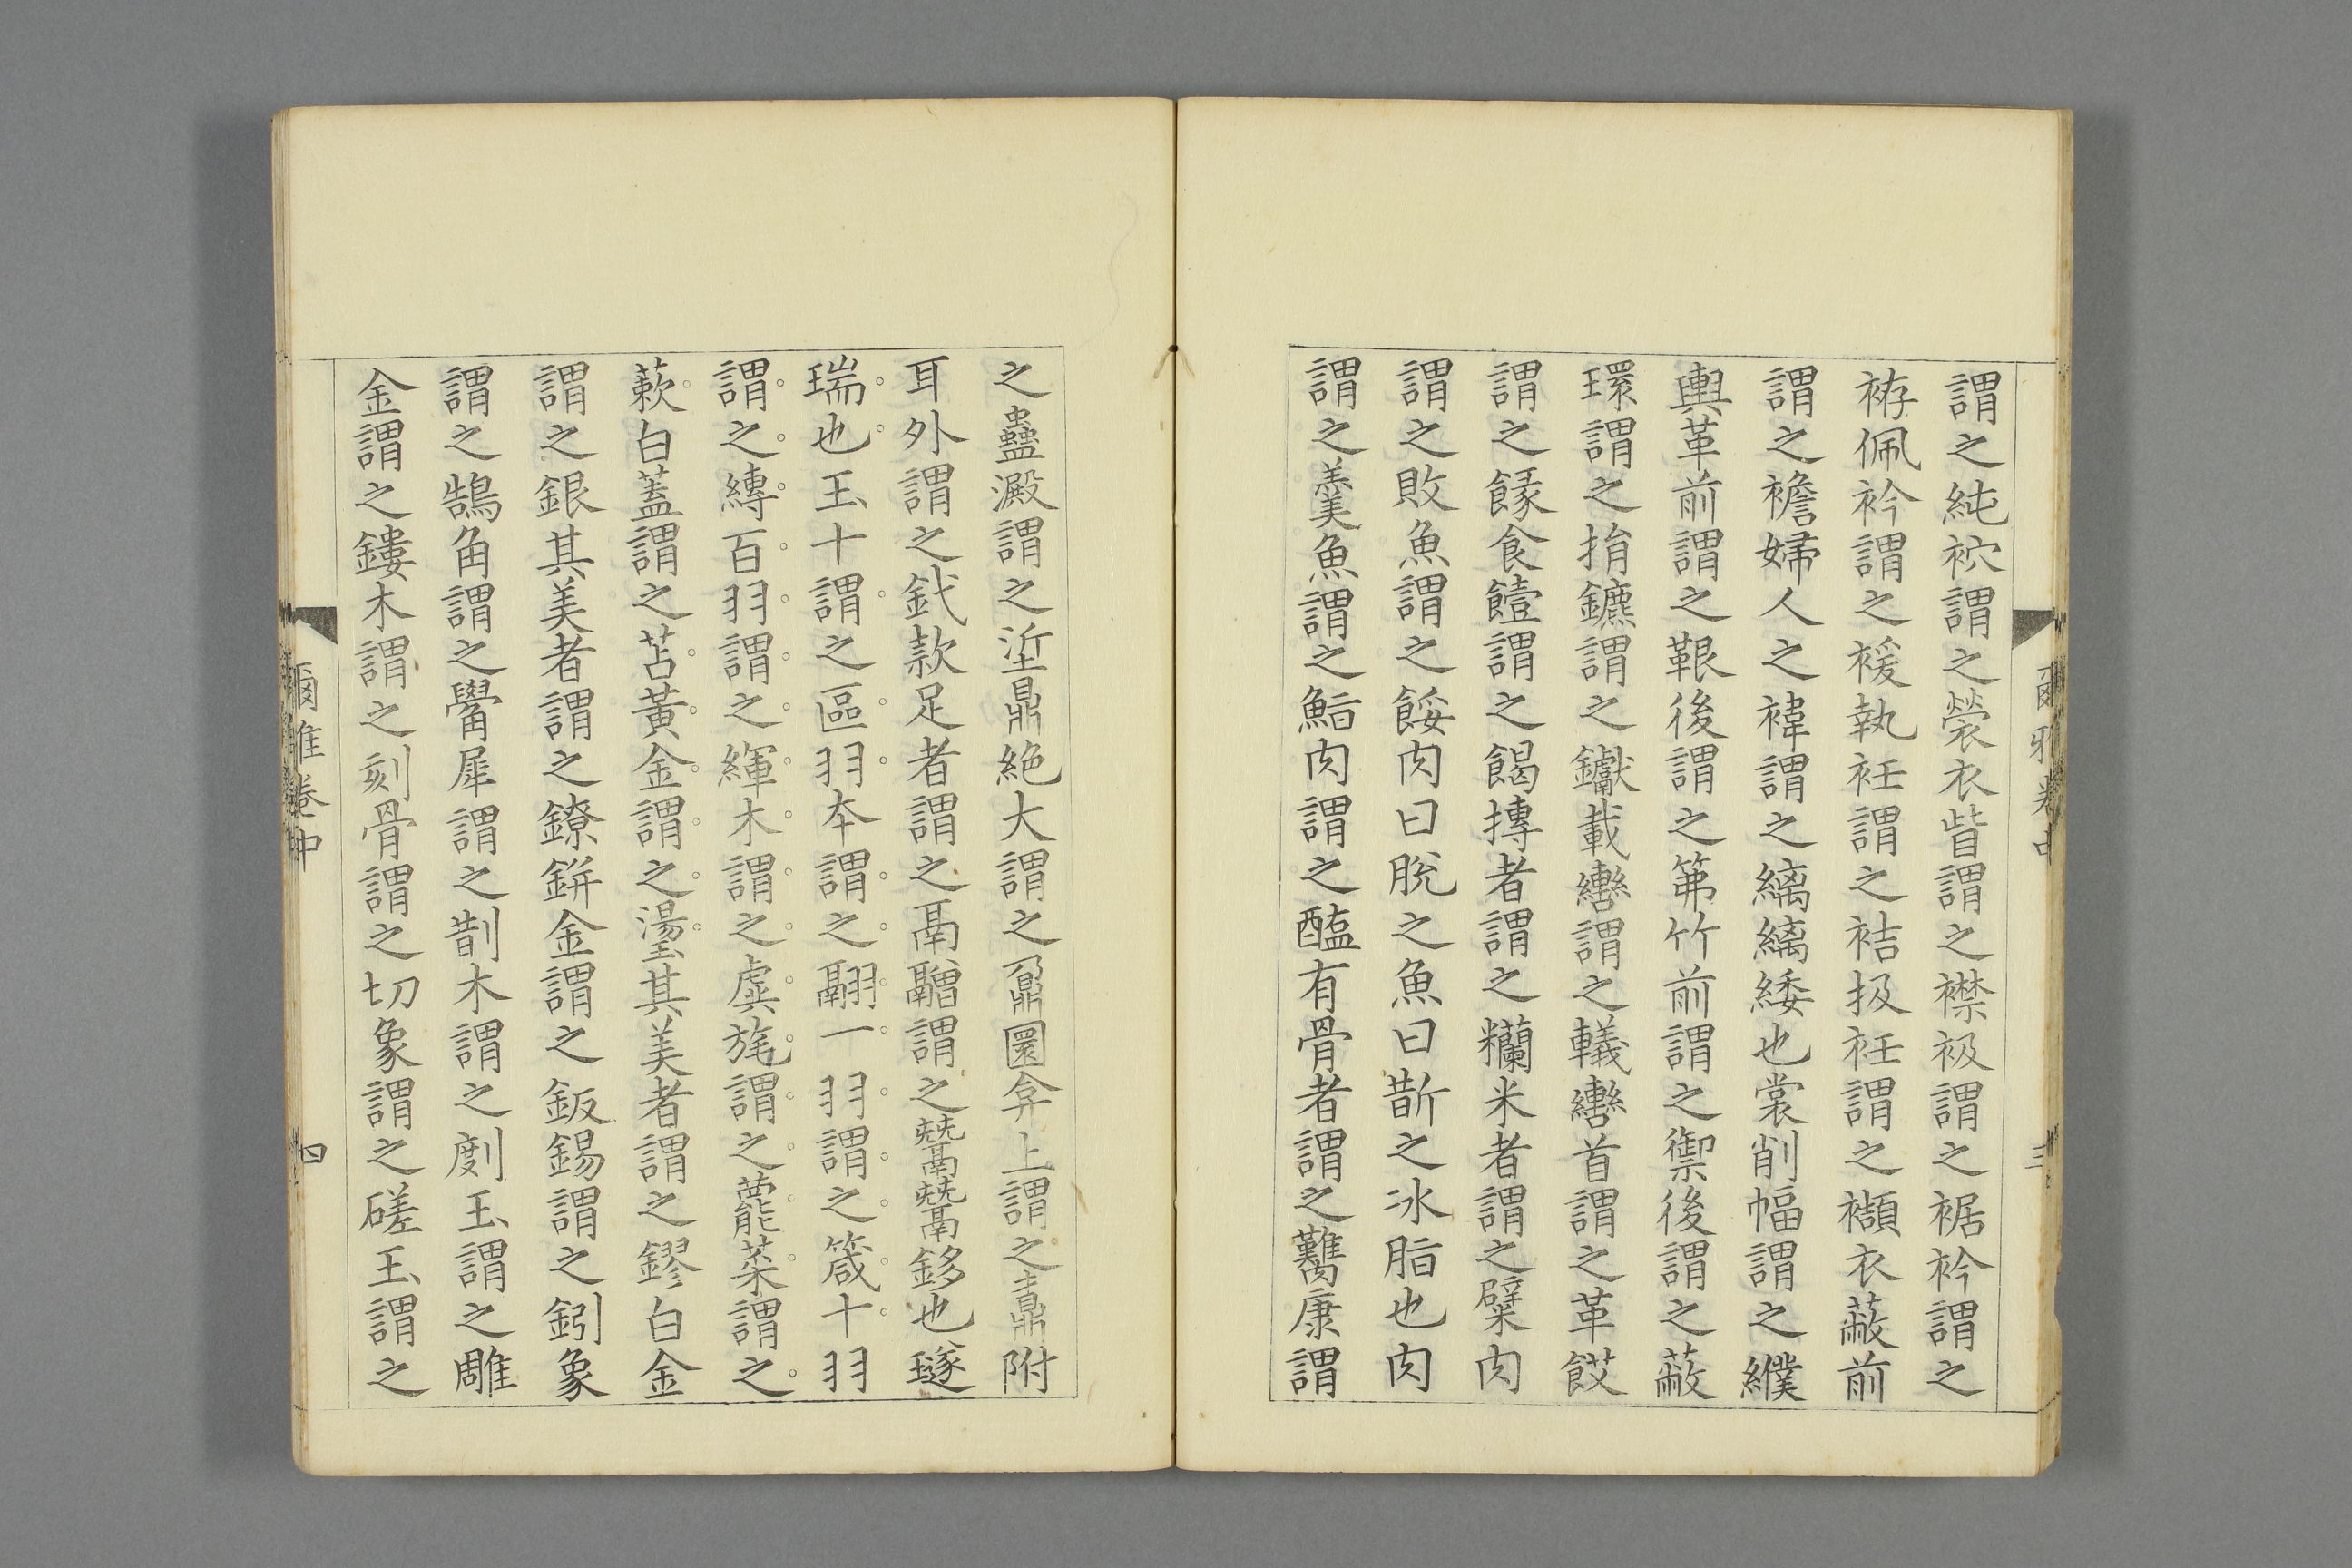 謂之純袕謂之褮衣眥謂之襟衱謂之裾衿謂之
袸佩衿謂之褑執衽謂之袺扱衽謂之襭衣蔽前
謂之襜婦人之褘謂之縭縭緌也裳削幅謂之纀
輿革前謂之鞎後謂之笰竹前謂之禦後謂之蔽
環謂之捐鑣謂之钀載轡謂之轙轡首謂之革餀
謂之餯食饐謂之餲摶者謂之糷米者謂之糪肉
謂之敗魚謂之餒肉曰脫之魚曰斮之冰脂也肉
謂之羹魚謂之鮨肉謂之醢有骨者謂之臡康謂
爾雅卷中 三
之蠱澱謂之垽鼎絕大謂之鼐圜弇上謂之鼒附
耳外謂之釴款足者謂之鬲䰝謂之鬵鬵鉹也璲
瑞也玉十謂之區羽本謂之翮一羽謂之箴十羽
謂之縳百羽謂之緷木謂之虡旄謂之藣菜謂之
蔌白蓋謂之苫黃金謂之璗其美者謂之鏐白金
謂之銀其美者謂之鐐鉼金謂之鈑錫謂之鈏象
謂之鵠角謂之觷犀謂之剒木謂之剫玉謂之雕
金謂之鏤木謂之刻骨謂之切象謂之磋玉謂之
爾雅卷中 四